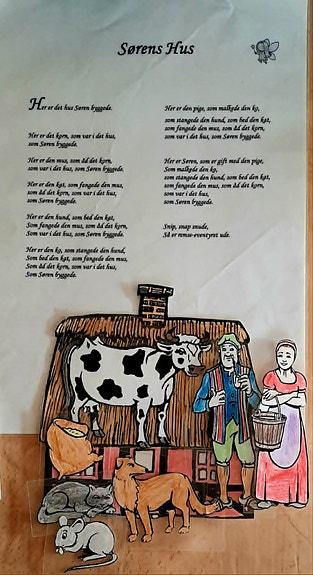 Sørens Hus
Her er det hus Søren byggede.
Her er det korn, som var i det hus,
som Søren byggede.
Her er den mus, som åd det korn,
som var i det hus, som Søren byggede.
Her er den kat, som fangede den mus,
som åd det korn, som var i det hus,
som Søren byggede.
Her er den hund, som bed den kat,
Som fangede den mus, som åd det korn,
Som var i det hus, som Søren byggede.
Her er den ko, som stangede den hund,
Som bed den kat, som fangede den mus,
Som åd det korn, som var i det hus,
Som Søren byggede.
Her er den pige, som malkede den ko,
som stangede den hund, som bed den kat,
som fangede den mus, som åd det korn,
som var i det hus, som Søren byggede.
Her er Søren, som er gift med den pige,
Som malkede den ko,
som stangede den hund, som bed den kat,
som fangede den mus, som åd det korn,
som var i det hus,
som Søren byggede.
Snip, snap snude,
Så er remse-eventyret ude.